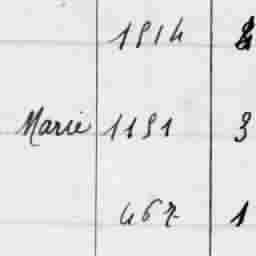 1514
Marie 1151 3
467 1